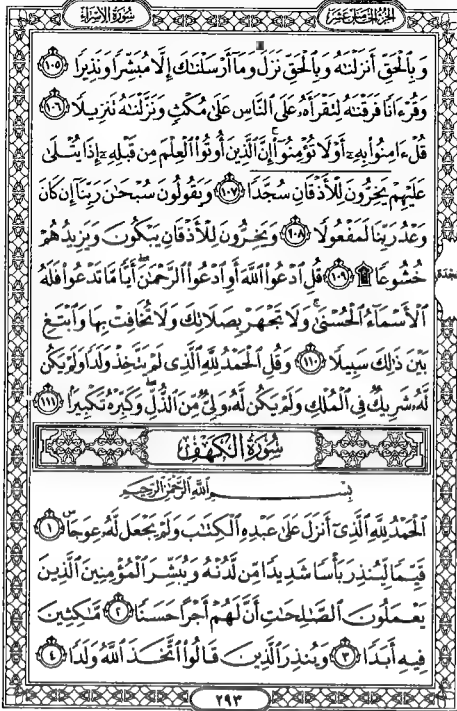 الجزء الخامس عشر
سورة الإسراء
وَبِٱلْحَقِّ أَنزَلْنَٰهُ وَبِٱلْحَقِّ نَزَلَ وَمَآ أَرْسَلْنَٰكَ إِلَّا مُبَشِّرًا وَنَذِيرًا ١٠٥
وَقُرْءَانًا فَرَقْنَٰهُ لِتَقْرَأَهُۥ عَلَى ٱلنَّاسِ عَلَىٰ مُكْثٍ وَنَزَّلْنَٰهُ تَنزِيلًا ١٠٦
قُلْ ءَامِنُوا۟ بِهِۦٓ أَوْ لَا تُؤْمِنُوٓا۟ إِنَّ ٱلَّذِينَ أُوتُوا۟ ٱلْعِلْمَ مِن قَبْلِهِۦٓ إِذَا يُتْلَىٰ
عَلَيْهِمْ يَخِرُّونَ لِلْأَذْقَانِ سُجَّدًا ١٠٧ وَيَقُولُونَ سُبْحَٰنَ رَبِّنَآ إِن كَانَ
وَعْدُ رَبِّنَا لَمَفْعُولًا ١٠٨ وَيَخِرُّونَ لِلْأَذْقَانِ يَبْكُونَ وَيَزِيدُهُمْ
خُشُوعًا ۩ ١٠٩ قُلِ ٱدْعُوا۟ ٱللَّهَ أَوِ ٱدْعُوا۟ ٱلرَّحْمَٰنَ ۖ أَيًّا مَّا تَدْعُوا۟ فَلَهُ
ٱلْأَسْمَآءُ ٱلْحُسْنَىٰ ۚ وَلَا تَجْهَرْ بِصَلَاتِكَ وَلَا تُخَافِتْ بِهَا وَٱبْتَغِ
بَيْنَ ذَٰلِكَ سَبِيلًا ١١٠ وَقُلِ ٱلْحَمْدُ لِلَّهِ ٱلَّذِى لَمْ يَتَّخِذْ وَلَدًا وَلَمْ يَكُن
لَّهُۥ شَرِيكٌ فِى ٱلْمُلْكِ وَلَمْ يَكُن لَّهُۥ وَلِىٌّ مِّنَ ٱلذُّلِّ ۖ وَكَبِّرْهُ تَكْبِيرًۢا ١١١
سُورَةُ الكَهْفِ
بِسْمِ ٱللَّهِ ٱلرَّحْمَٰنِ ٱلرَّحِيمِ
ٱلْحَمْدُ لِلَّهِ ٱلَّذِىٓ أَنزَلَ عَلَىٰ عَبْدِهِ ٱلْكِتَٰبَ وَلَمْ يَجْعَل لَّهُۥ عِوَجَا ۜ ١
قَيِّمًا لِّيُنذِرَ بَأْسًا شَدِيدًا مِّن لَّدُنْهُ وَيُبَشِّرَ ٱلْمُؤْمِنِينَ ٱلَّذِينَ
يَعْمَلُونَ ٱلصَّٰلِحَٰتِ أَنَّ لَهُمْ أَجْرًا حَسَنًا ٢ مَّٰكِثِينَ
فِيهِ أَبَدًا ٣ وَيُنذِرَ ٱلَّذِينَ قَالُوا۟ ٱتَّخَذَ ٱللَّهُ وَلَدًا ٤
٢٩٣